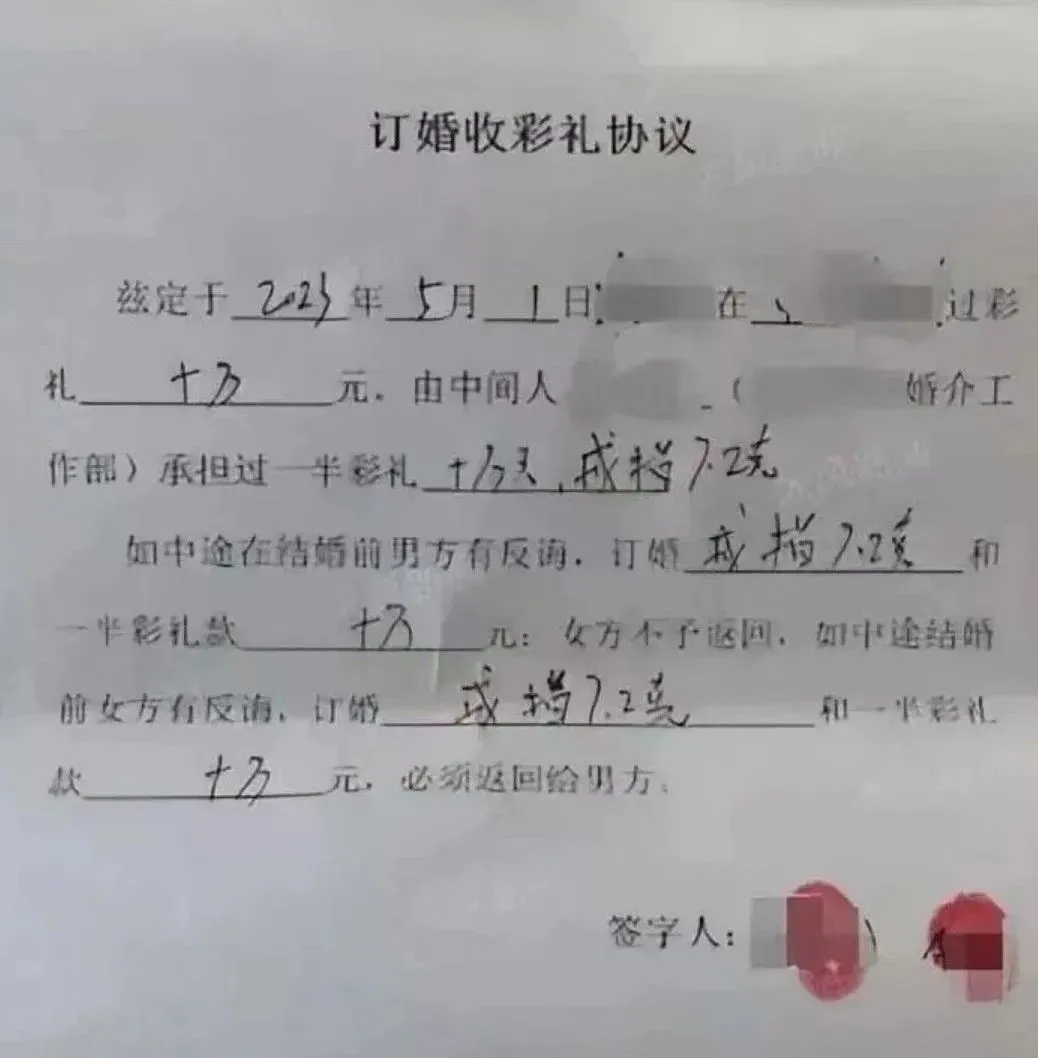 订婚收彩礼协议
兹定于 2023 年 5 月 1 日 在 过彩
礼 十万 元，由中间人 （ 婚介工
作部）承担过一半彩礼 十万元，戒指7.2克
如中途在结婚前男方有反悔，订婚 戒指7.2克 和
一半彩礼款 十万 元；女方不予返回，如中途结婚
前女方有反悔，订婚 戒指7.2克 和一半彩礼
款 十万 元，必须返回给男方。
签字人：